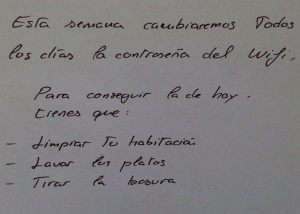 Esta semana cambiaremos Todos
los días la contraseña del Wifi,
Para conseguir la de hoy.
tienes que:
- Limpiar Tu habitación
- Lavar los platos
- Tirar la basura